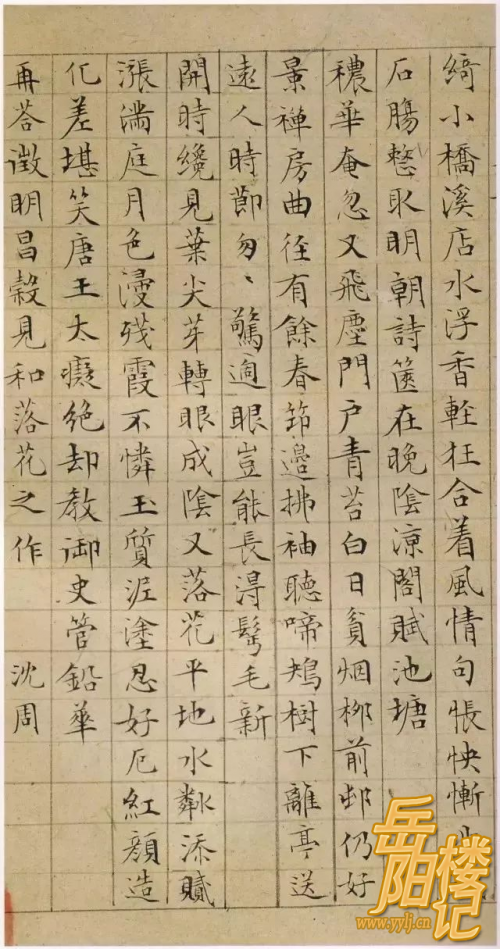 綺小橋溪店水浮香輕狂合着風情句悵怏慚
石腸整取明朝詩篋在晚陰涼閣賦池塘
穠華奄忽又飛塵門户青苔白日貧烟柳前邨仍好
景禪房曲徑有餘春筇邊拂袖聽啼鴂樹下離亭送
遠人時節匆、驚適眼豈能長淂鬢毛新
開時纔見葉尖芽轉眼成陰又落花平地水粼添膩
漲滿庭月色漫殘霞不憐玉質泥塗忍好厄紅顏造
化差堪笑唐王太癡絕却教御史管鉛華
再荅徵明昌穀見和落花之作 沈周
岳阳楼记
www.yylj.cn